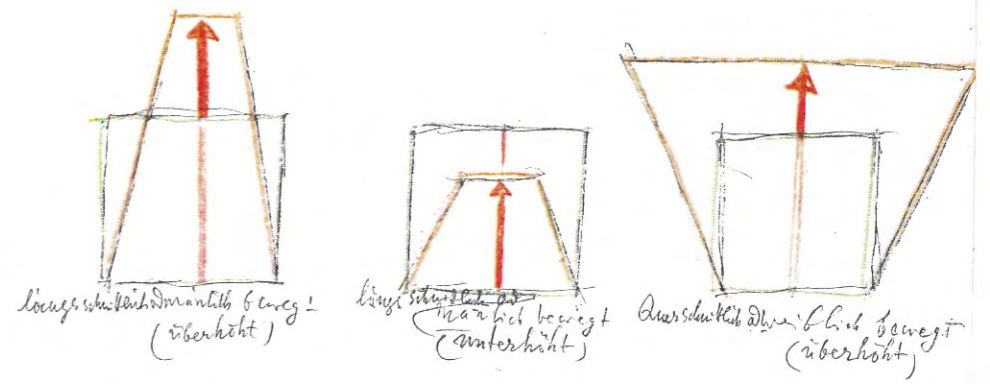 längsschnittlich männlich bewegt
(überhöht)
längsschnittlich
männlich bewegt
(unterhöht)
Querschnittlich weiblich bewegt
(überhöht)